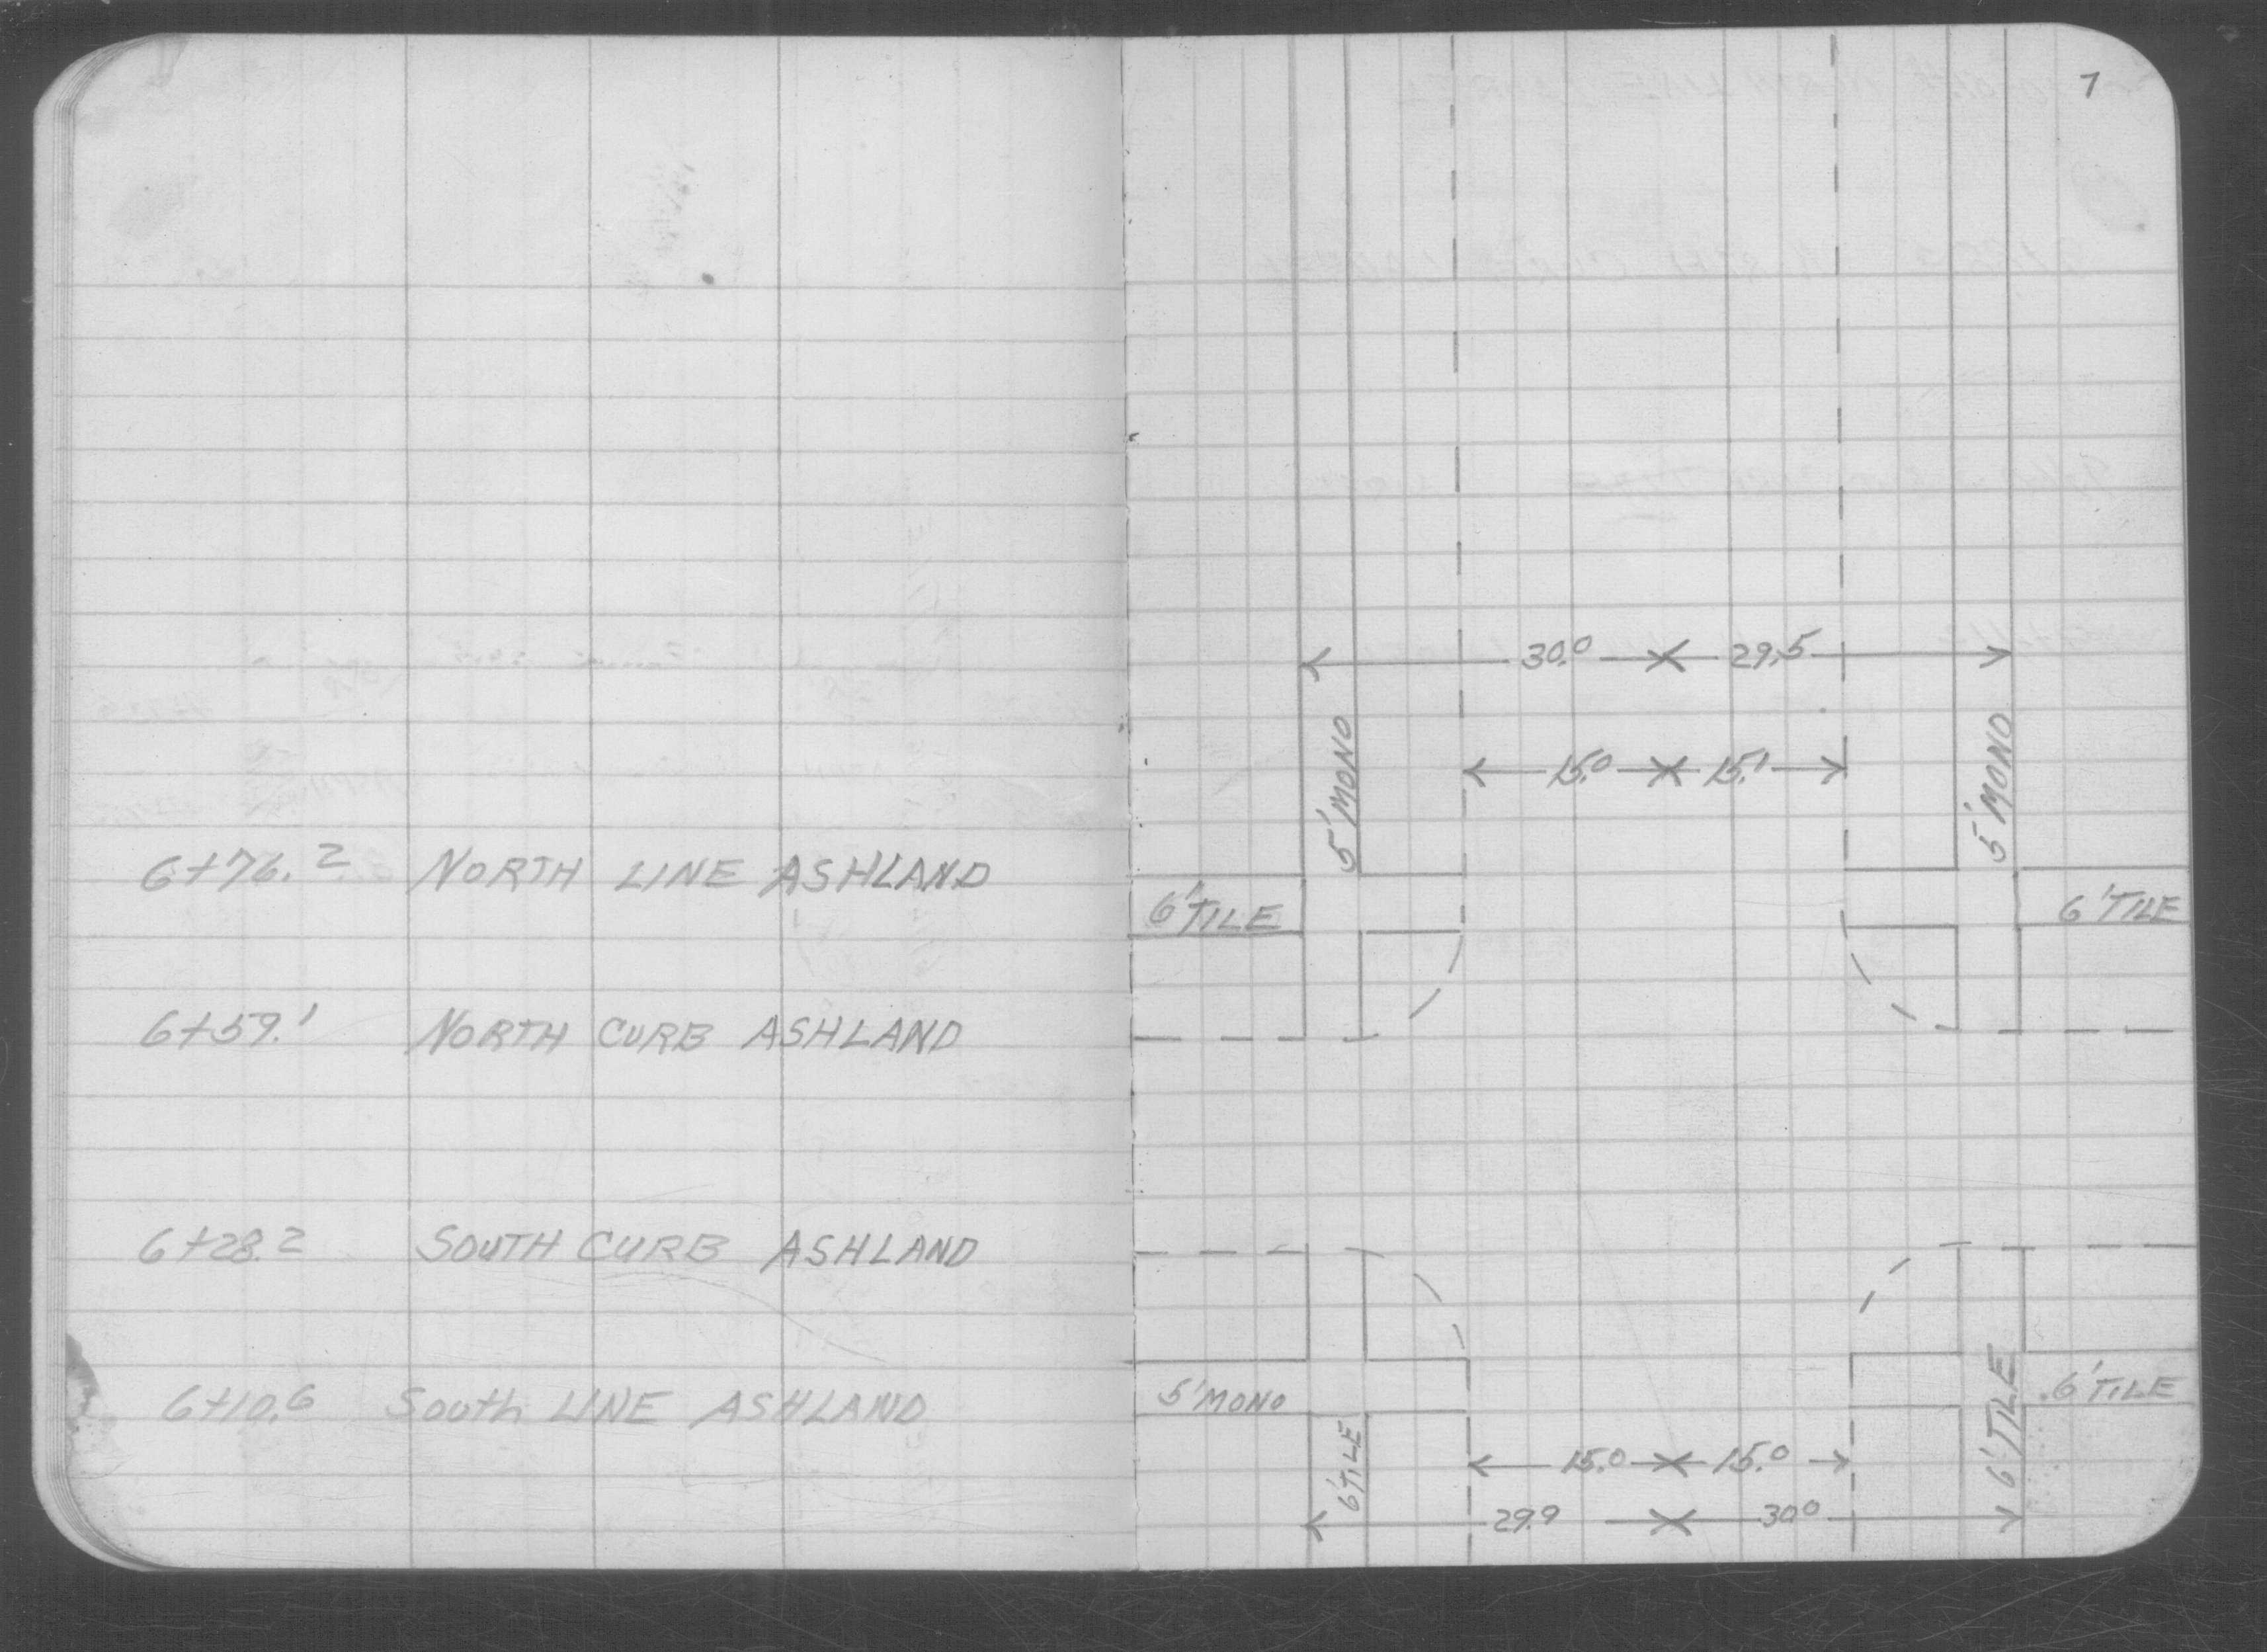 7
30.0 29.5
15.0 15.1
5' MONO 5' MONO
6+76.2 NORTH LINE ASHLAND
6' TILE 6' TILE
6+59.1 NORTH CURB ASHLAND
6+28.2 SOUTH CURB ASHLAND
6+10.6 South LINE ASHLAND
5' MONO 6' TILE
6' TILE 6' TILE
15.0 15.0
29.9 30.0